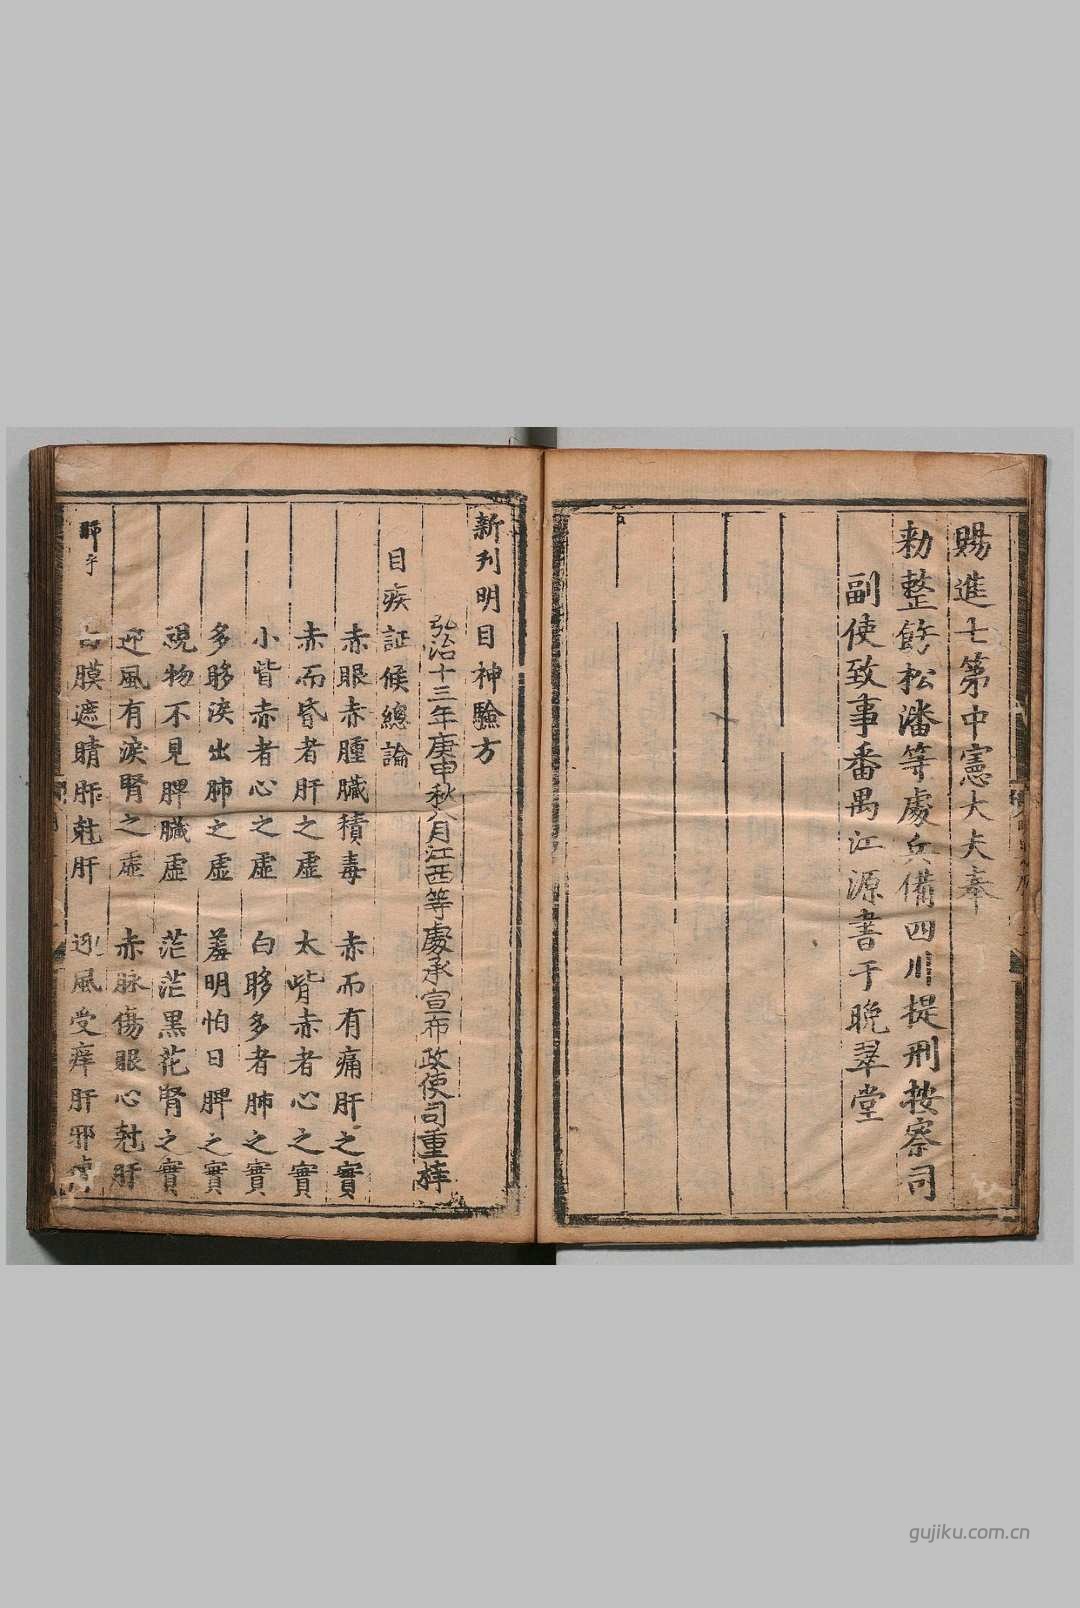 賜進士第中憲大夫奉
勑整飭松潘等處兵備四川提刑按察司
副使致事番禺江源書于晩翠堂
新刋明目神驗方
弘治十三年庚申秋八月江西等處承宣布政使司重梓
目疾証候總論
赤眼赤腫臓積毒 赤而有痛肝之實
赤而昏者肝之虛 太眥赤者心之實
小眥赤者心之虛 白眵多者肺之實
多眵淚出肺之虛 羞明怕日脾之實
視物不見脾臓虛 茫茫黒花腎之實
迎風有淚腎之虛 赤脉傷眼心尅肝
膜遮睛肺尅肝 迎風受痒肝邪
gujiku.com.cn